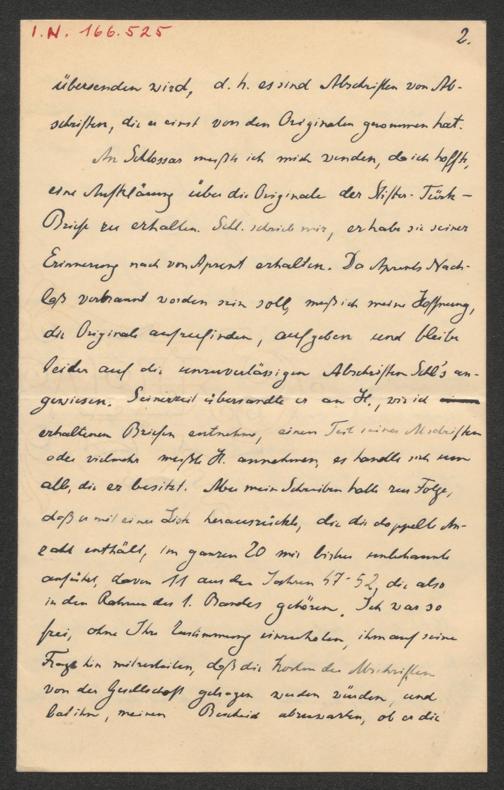 I.N. 166.525
2.
übersenden wird, d. h. es sind Abschriften von Ab-
schriften, die er einst von den Originalen genommen hat.
An Schlossar mußte ich mich wenden, da ich hoffte,
eine Aufklärung über die Originale der Stifter-Türk-
Briefe zu erhalten. Schl. schrieb mir, er habe sie seiner
Erinnerung nach von Aprent erhalten. Da Aprents Nach-
laß verbrannt worden sein soll, muß ich meine Hoffnung,
die Originale aufzufinden, aufgeben und bleibe
leider auf die unzuverlässigen Abschriften Schl's an-
gewiesen. Seinerzeit übersandte er an H., wie ich
erhaltenen Briefen entnehme, einen Teil seiner Abschriften
oder vielmehr mußte H. annehmen, es handle sich um
alle, die er besitzt. Aber mein Schreiben hatte zur Folge,
daß er mit einer Liste herausrückte, die die doppelte An-
zahl enthält, im ganzen 20 mir bisher unbekannte
anführt, davon 11 aus den Jahren 47-52, die also
in den Rahmen des 1. Bandes gehören. Ich war so
frei, ohne Ihre Zustimmung einzuholen, ihm auf seine
Frage hin mitzuteilen, daß die Kosten der Abschriften
von der Gesellschaft getragen werden würden, und
bat ihn, meinen Bescheid abzuwarten, ob er die